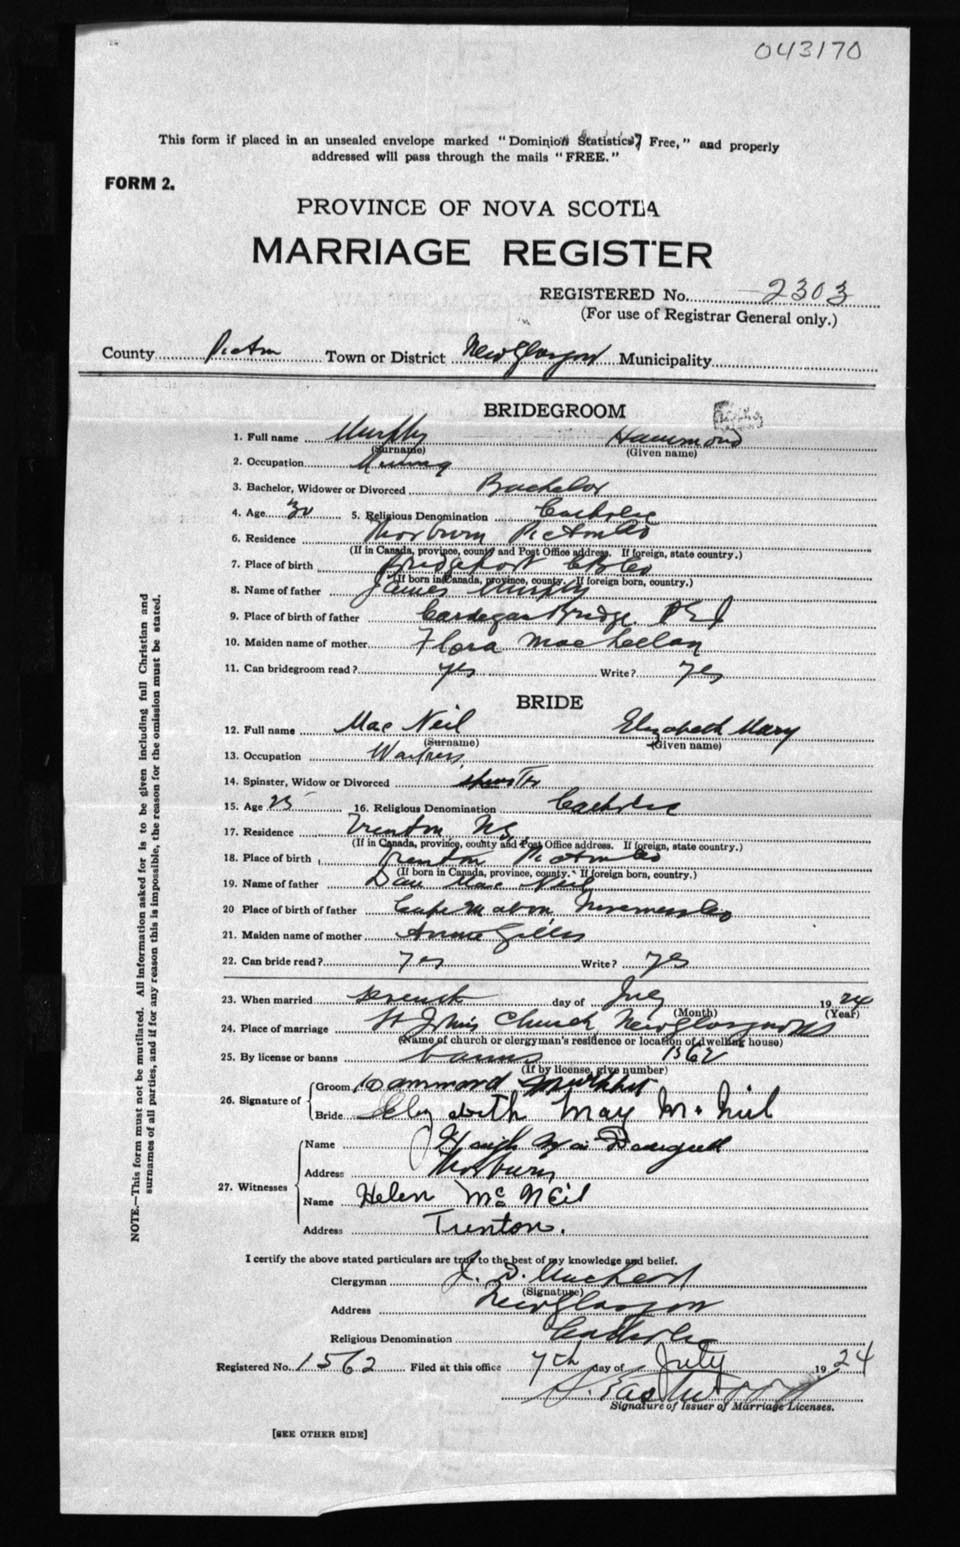 043170
This form if placed in an unsealed envelope marked "Dominion Statistics, Free," and properly
addressed will pass through the mails "FREE."
FORM 2.
PROVINCE OF NOVA SCOTIA
MARRIAGE REGISTER
REGISTERED No. 2303
(For use of Registrar General only.)
County Pictou Town or District New Glasgow Municipality
BRIDEGROOM
1. Full name Murphy Hammond
(Surname) (Given name)
2. Occupation
3. Bachelor, Widower or Divorced Bachelor
4. Age 30 5. Religious Denomination Catholic
6. Residence Thorburn Pictou Co
(If in Canada, province, county and Post Office address. If foreign, state country.)
7. Place of birth Bridgeport CB Co
(If born in Canada, province, county. If foreign born, country.)
8. Name of father James Murphy
9. Place of birth of father Cardegan Bridge. P E I
10. Maiden name of mother Flora MacLellan
11. Can bridegroom read? yes Write? yes
BRIDE
12. Full name MacNeil Elizabeth Mary
(Surname) (Given name)
13. Occupation
14. Spinster, Widow or Divorced spinster
15. Age 25 16. Religious Denomination Catholic
17. Residence Trenton NS
(If in Canada, province, county and Post Office address. If foreign, state country.)
18. Place of birth Trenton Pictou Co
(If born in Canada, province, county. If foreign born, country.)
19. Name of father Dan MacNeil
20 Place of birth of father Cape Mabou Inverness Co
21. Maiden name of mother Annie Gillis
22. Can bride read? yes Write? yes
23. When married seventh day of July 1924
(Month) (Year)
24. Place of marriage St Johns Church, New Glasgow NS
(Name of church or clergyman's residence or location of dwelling house)
25. By license or banns banns 1562
(If by license, give number)
26. Signature of
Groom Hammond Murphy
Bride Elizabeth May McNeil
27. Witnesses
Name
Address Thorburn
Name Helen McNeil
Address Trenton.
I certify the above stated particulars are true to the best of my knowledge and belief.
Clergyman J. D. MacLeod
(Signature)
Address New Glasgow
Religious Denomination Catholic
Registered No. 1562 Filed at this office 7th day of July 1924
Signature of Issuer of Marriage Licenses.
[SEE OTHER SIDE]
NOTE.—This form must not be mutilated. All information asked for is to be given including full Christian and
surnames of all parties, and if for any reason this is impossible, the reason for the omission must be stated.